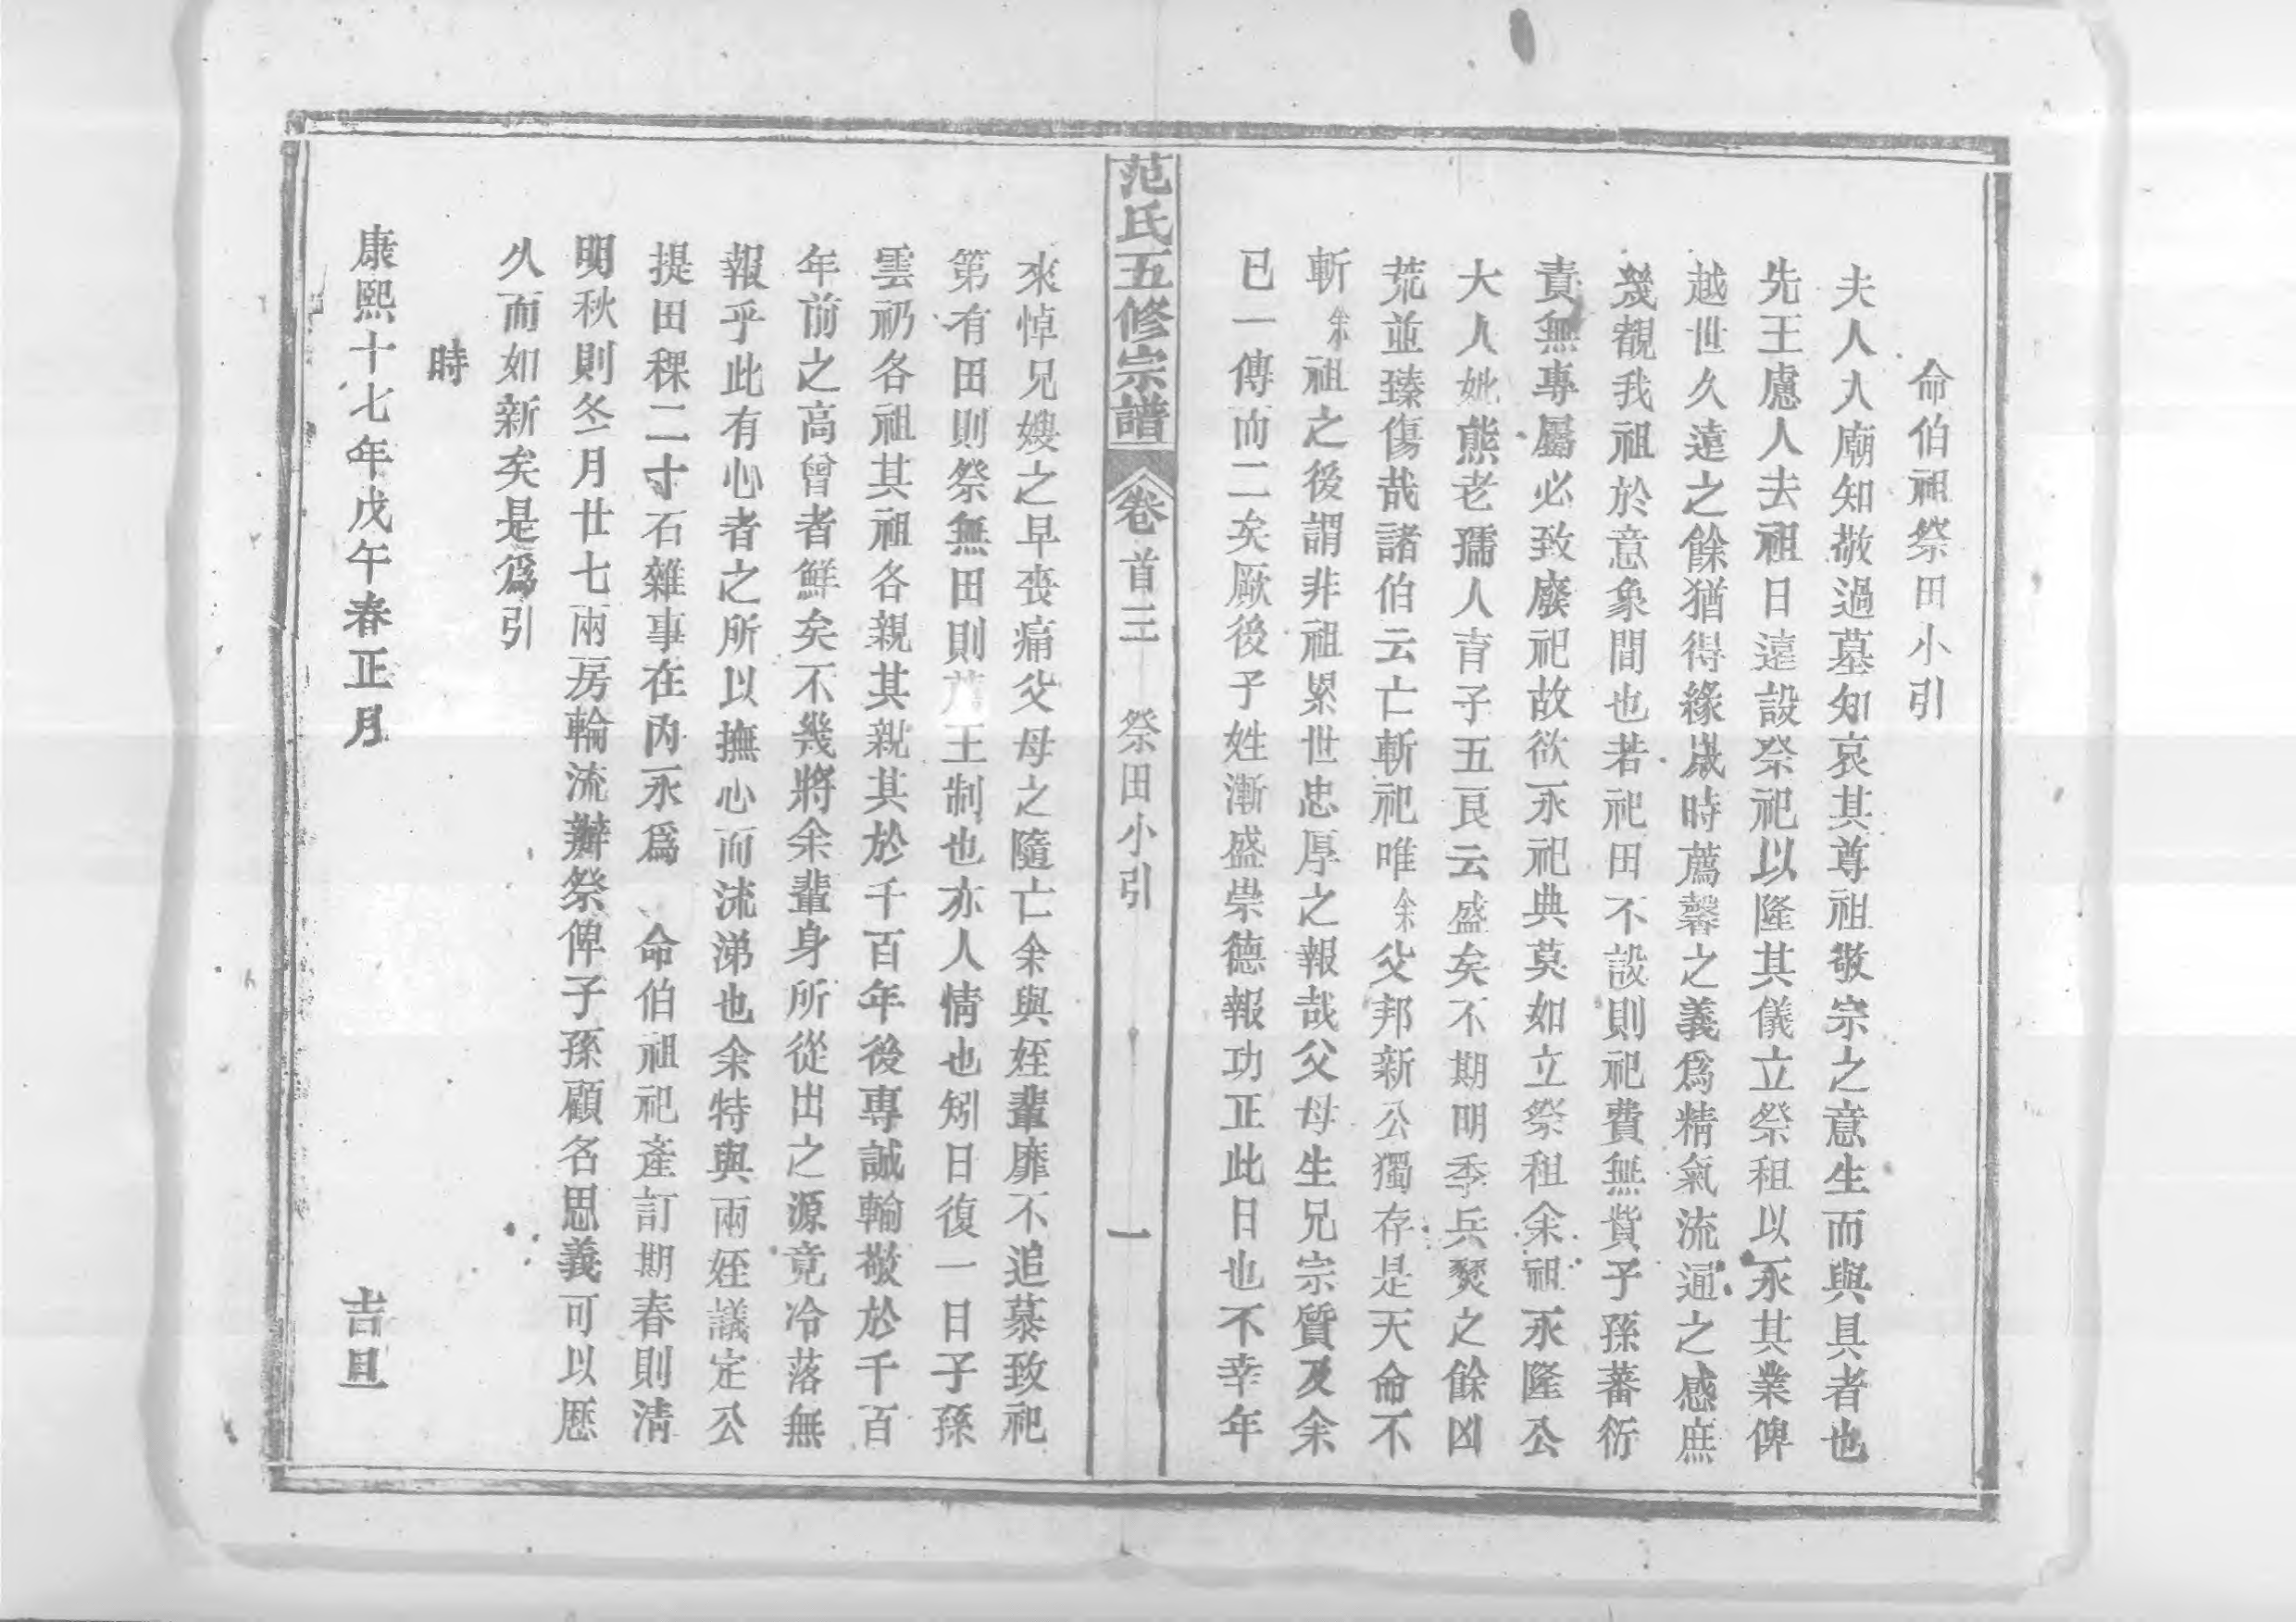 命伯祖祭田小引
夫人入廟知敬過墓知哀其尊祖敬宗之意生而與具者也
先王慮人去祖日遠設祭祀以隆其儀立祭租以永其業俾
越世久遠之餘猶得緣歲時薦馨之義爲精氣流通之感庶
幾覩我祖於意象間也若祀田不設則祀費無貲子孫蕃衍
責無專屬必致廢祀故欲永祀典莫如立祭租余祖永隆公
大人妣熊老孺人育子五良云盛矣不期明季兵燹之餘凶
荒並臻傷哉諸伯云亡斬祀唯余父邦新公獨存是天命不
斬余祖之後謂非祖累世忠厚之報哉父母生兄宗質及余
已一傳而二矣厥後子姓漸盛崇德報功正此日也不幸年
范氏五修宗譜 卷首三 祭田小引 一
來悼兄嫂之早喪痛父母之隨亡余與姪輩靡不追慕致祀
第有田則祭無田則薦王制也亦人情也矧日復一日子孫
雲礽各祖其祖各親其親其於千百年後專誠輸敬於千百
年前之高曾者鮮矣不幾將余輩身所從出之源竟冷落無
報乎此有心者之所以撫心而流涕也余特與兩姪議定公
提田稞二寸石雜事在內永爲 命伯祖祀產訂期春則清
明秋則冬月廿七兩房輪流辦祭俾子孫顧名思義可以歷
久而如新矣是爲引
時
康熙十七年戊午春正月 吉旦